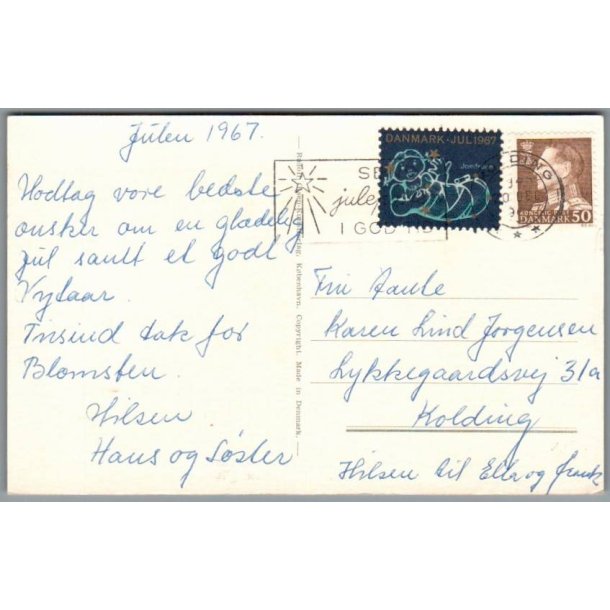 Julen 1967.
Modtag vore bedste
ønsker om en glædelig
jul samt et godt
Nytaar.
Tusind tak for
Blomsten.
Hilsen
Hans og Søster
DANMARK · JUL 1967
SE
jule
I GOD
DING
KONG FR. IX
DANMARK 50
Forlag, København. Copyright. Made in Denmark.
Frk Tante
Karen Lind Jørgensen
Lykkegaardsvej 31a
Kolding
Hilsen til Ella og Frank